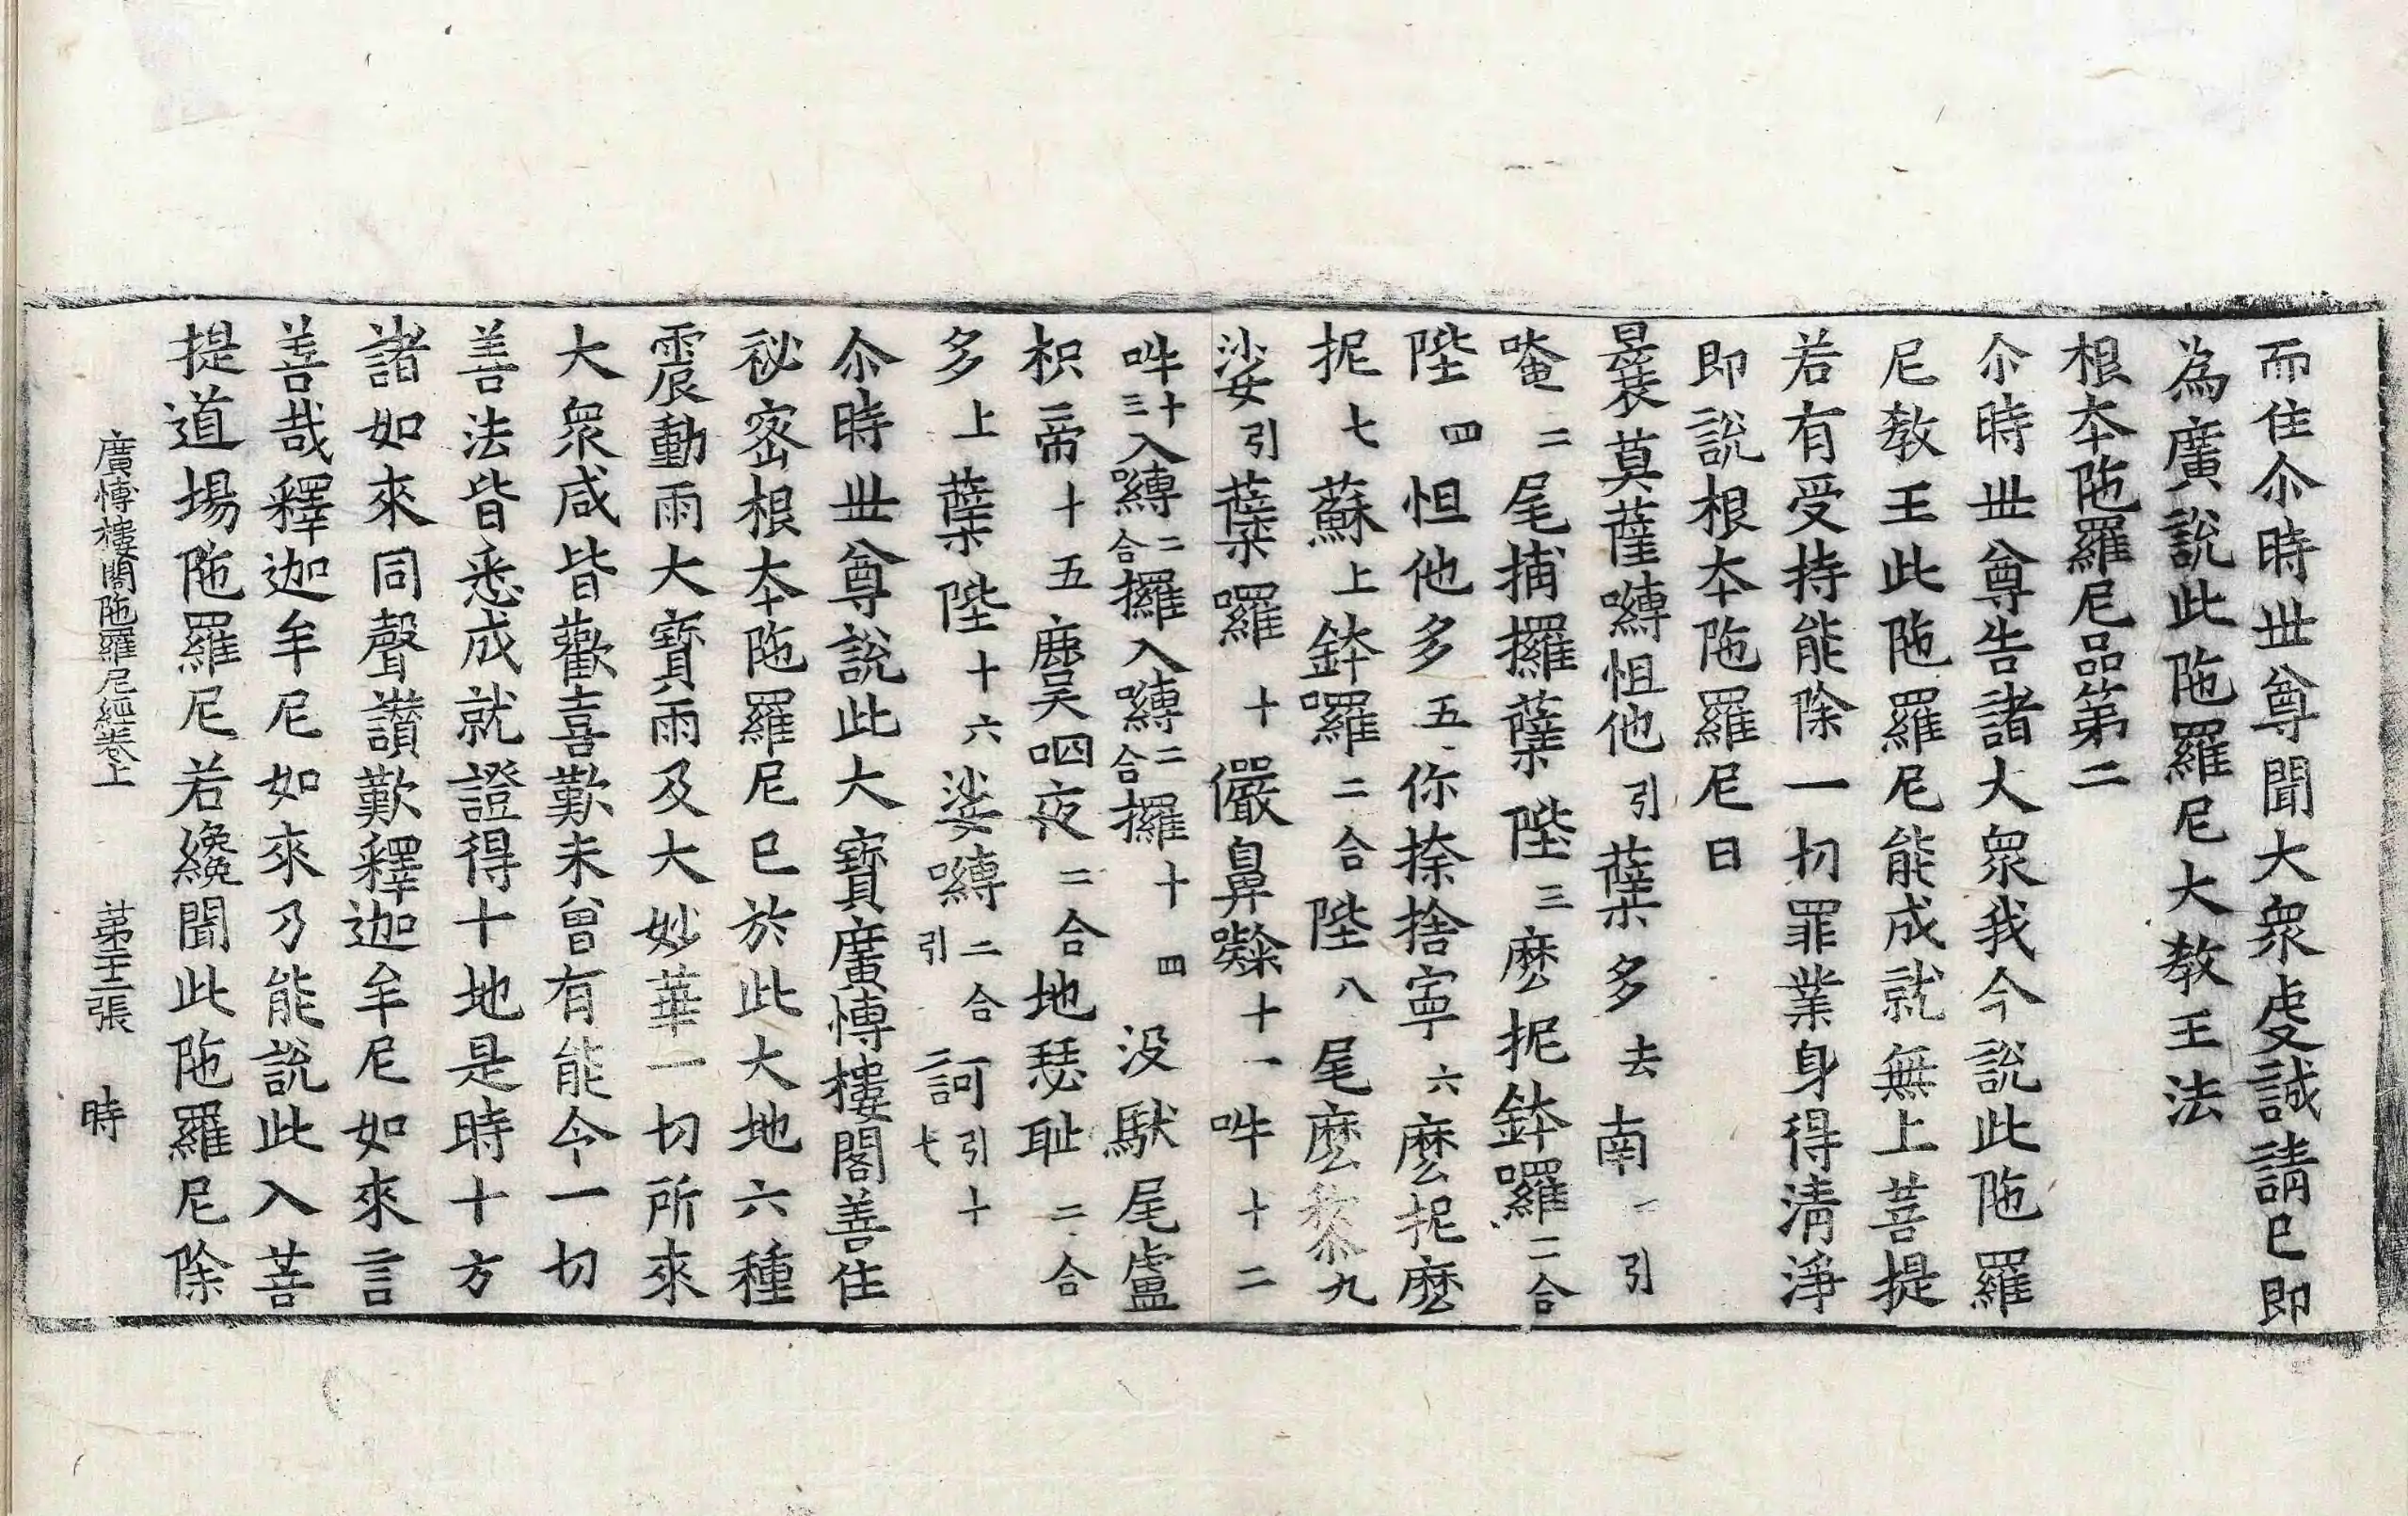 而住尒時丗尊聞大衆虔誠請已即
為廣說此陁羅尼大教王法
根夲陁羅尼品第二
尒時丗尊告諸大衆我今說此陁羅
尼教王此陁羅尼能成就無上菩提
若有受持能除一切罪業身得清淨
即說根夲陁羅尼曰
曩莫薩嚩怛他引蘖多去南一引
唵二尾捕攞蘖陛三麽抳鉢囉二合
陛四怛他多五你捺捨寧六麽抳麽
抳七蘇上鉢囉二合陛八尾麽黎九
娑引蘖囉十儼鼻㘑十一吽十二
吽十三入嚩二合攞入嚩二合攞十四没馱尾盧
枳二帝十五麌呬夜二合地瑟耻二合
多上蘖陛十六娑嚩二合引訶引十七二
尒時丗尊說此大寶廣博樓閣善住
祕密根夲陁羅尼已於此大地六種
震動雨大寶雨及大妙華一切所來
大衆咸皆歡喜歎未曾有能令一切
善法皆悉成就證得十地是時十方
諸如來同聲讚歎釋迦牟尼如來言
善哉釋迦牟尼如來乃能說此入菩
提道場陁羅尼若纔聞此陁羅尼除
廣博樓閣陁羅尼經卷上 第十二張 時